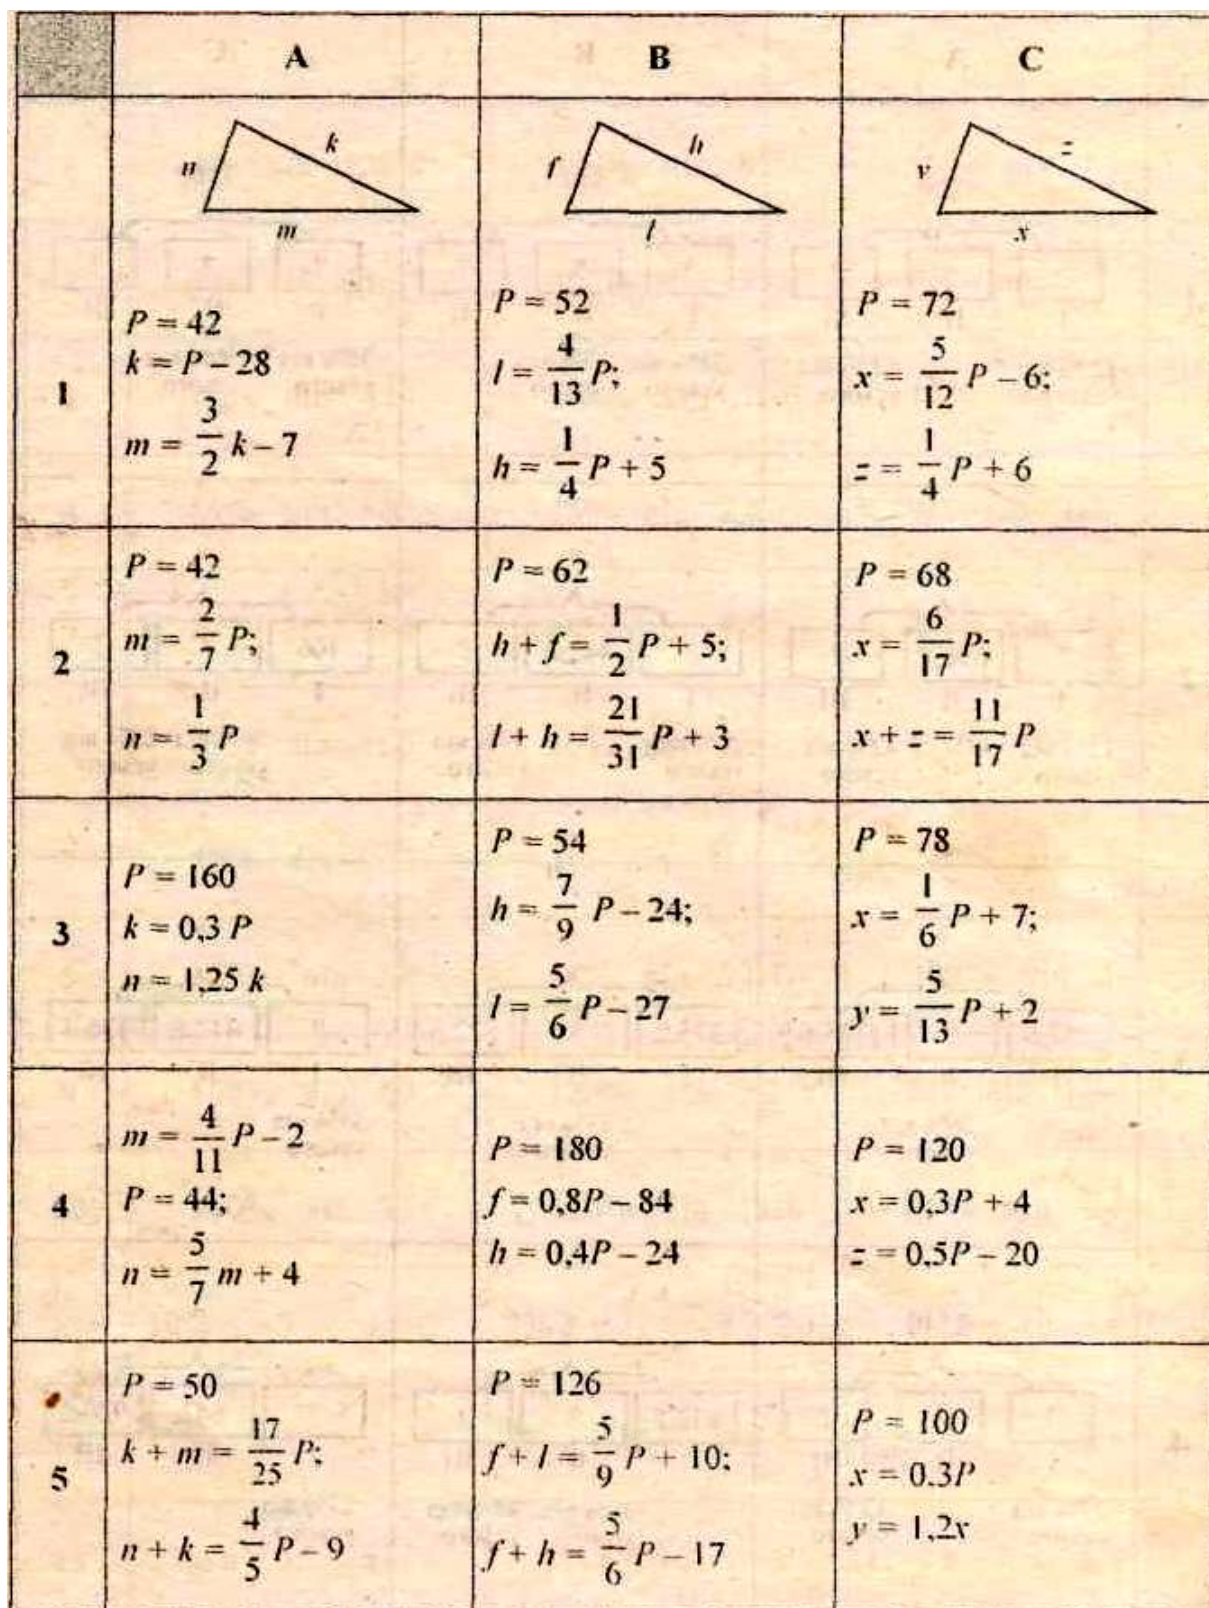 A B C
n k m
f h l
y z x
1
P = 42
k = P – 28
m = 3/2 k – 7
P = 52
l = 4/13 P;
h = 1/4 P + 5
P = 72
x = 5/12 P – 6;
z = 1/4 P + 6
2
P = 42
m = 2/7 P;
n = 1/3 P
P = 62
h + f = 1/2 P + 5;
l + h = 21/31 P + 3
P = 68
x = 6/17 P;
x + z = 11/17 P
3
P = 160
k = 0,3 P
n = 1,25 k
P = 54
h = 7/9 P – 24;
l = 5/6 P – 27
P = 78
x = 1/6 P + 7;
y = 5/13 P + 2
4
m = 4/11 P – 2
P = 44;
n = 5/7 m + 4
P = 180
f = 0,8P – 84
h = 0,4P – 24
P = 120
x = 0,3P + 4
z = 0,5P – 20
5
P = 50
k + m = 17/25 P;
n + k = 4/5 P – 9
P = 126
f + l = 5/9 P + 10;
f + h = 5/6 P – 17
P = 100
x = 0.3P
y = 1,2x